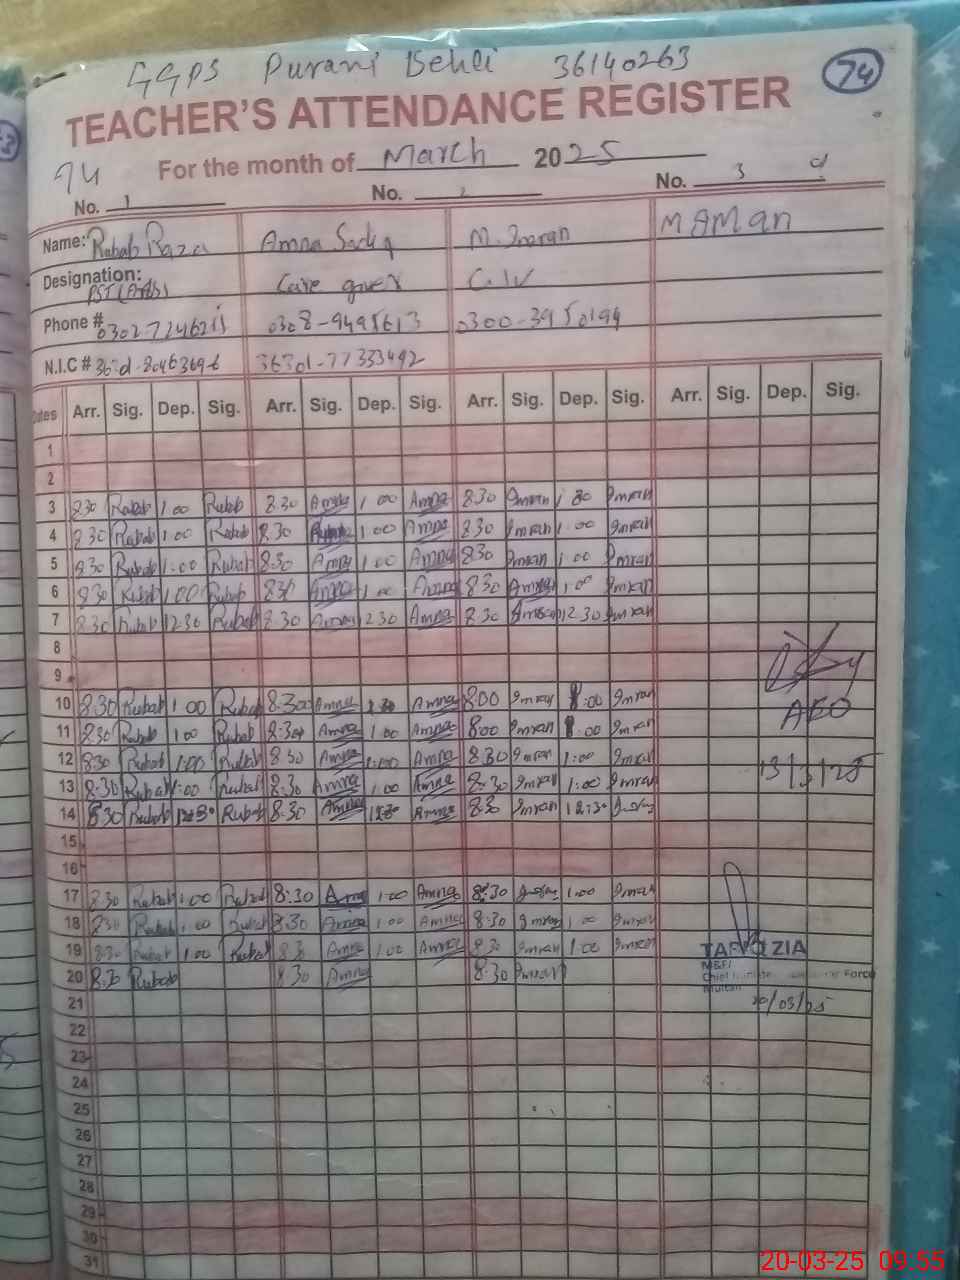 GGPS Purani Behli 36140263
74
TEACHER'S ATTENDANCE REGISTER
74 For the month of March 2025
No. 1 No. 2 No. 3
Name: Rubab Raza Amna Sadiq M. Imran
Designation: Care giver C.IV
Phone # 0308-9495613
N.I.C # 36301-77333492
Dates Arr. Sig. Dep. Sig. Arr. Sig. Dep. Sig. Arr. Sig. Dep. Sig. Arr. Sig. Dep. Sig.
1
2
3 8.30 Rubab 1.00 Rubab 8.30 Amna 1.00 Amna 8.30 Imran Imran
4 8.30 Rubab 1.00 Rubab 8.30 1.00 Amna 8.30 Imran 1.00 Imran
5 8.30 Rubab 1:00 Rubab 8:30 Amna 1.00 Amna 8.30 Imran 1.00 Imran
6 8.30 Rubab 1.00 Rubab 8.30 Amna 1.00 Amna 8.30 1.00 Imran
7 8.30 Rubab 12.30 Rubab 8.30 Amna 12.30 Amna 8.30 Imran 12.30 Imran
8
9
10 8.30 Rubab 1.00 Rubab 8:30 Amna Amna 8.00 Imran Imran
11 8.30 Rubab 1.00 Rubab 8:30 Amna 1.00 Amna 8.00 Imran Imran
AEO
12 8.30 Rubab 1:00 Rubab 8.30 Amna 1:00 Amna 8.30 Imran 1:00 Imran
13/3/25
13 8.30 Rubab 1:00 Rubab 8.30 Amna 1.00 Amna 8.30 Imran 1:00 Imran
14 8.30 Rubab 12:30 Rubab 8.30 Amna 12:30 Amna 8.30 Imran 12:30
15
16
17 8.30 Rubab 1.00 Rubab 8:30 Amna 1.00 Amna 8:30 1.00 Imran
18 8.30 Rubab 1.00 Rubab 8.30 Amna 1.00 Amna 8.30 Imran 1.00 Imran
19 8.30 Rubab 1.00 Rubab 8.30 Amna 1.00 Amna 8.30 Imran 1.00 Imran
20 8.30 Rubab 8.30 Amna 8.30 Imran
ZIA
Chief Force
Multan
20/03/25
21
22
23
24
25
26
27
28
29
30
31
20-03-25 09:55